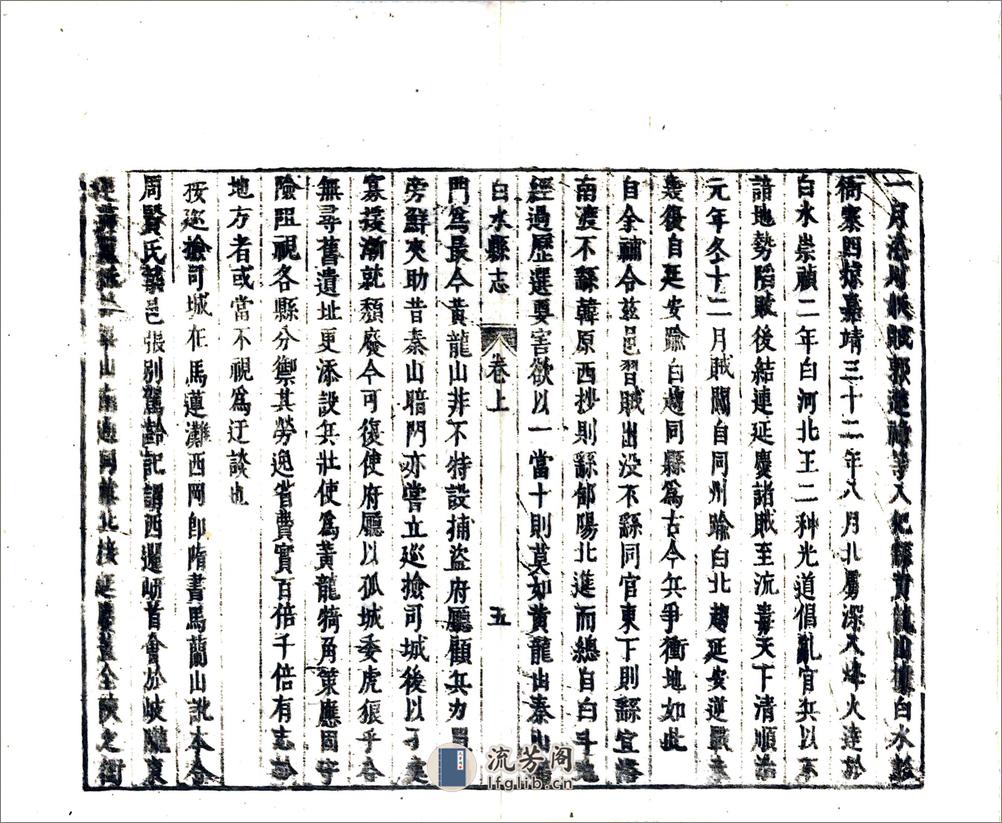 一月志賊等入犯縣黃龍山據白水於
衙寨四掠嘉靖三十二年八月北虜深入烽火達於
白水崇禎二年白河北王二种光道倡亂官兵以不
諳地勢陷賊後結連延慶諸賊至流毒天下清順治
元年冬十二月賊闖自同州踰白北趨延安逆戰
衆復自延安踰白趨同縣為古今兵爭衝地如此
自金禰令茲邑習賊出没不繇同官東下則繇宜洛
南渡不繇韓原西抄則繇郃陽北進而總自白斗
經過歷選要害欲以一當十則莫如黃龍山秦山
白水縣志 卷上 五
門為最今黃龍山非不特設捕盜府廳顧兵力
旁鮮夾助昔秦山暗門亦嘗立巡檢司城後以
寡援漸就頹廢今可復使府廳以孤城委虎狼乎合
無尋舊遺址更添設兵壯使為黃龍犄角策應固守
險阻視各縣分禦其勞逸省費實百倍千倍有志於
地方者或當不視為迂談也
按巡檢司城在馬蓮灘西岡即隋書馬蘭山說本合
周賢氏築邑張別駕齡記謂西邐岍首會於岐隴東
山北接延全陝之街
流芳阁
lfglib.cn